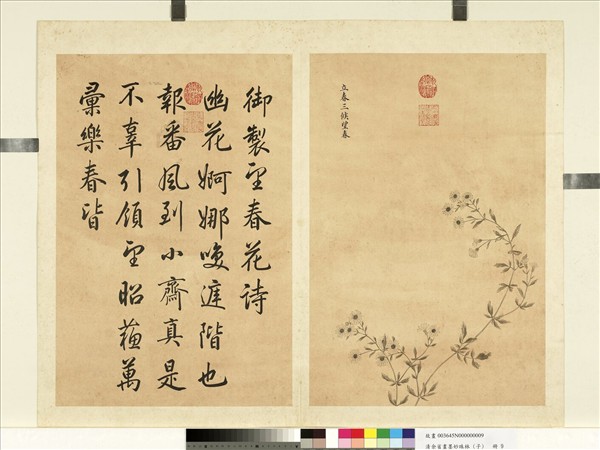 立春三候望春
御製望春花詩
幽花婀娜庭階也
報番風到小齋真是
不辜引領望昭蘇萬
彙樂春皆
故畫 003645N000000009
清余省畫墨妙珠林（子） 冊 9